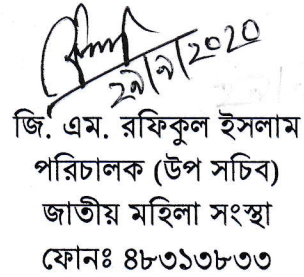 ২৯/৯/২০২০
জি. এম. রফিকুল ইসলাম
পরিচালক (উপ সচিব)
জাতীয় মহিলা সংস্থা
ফোনঃ ৪৮৩১৩৮৩৩